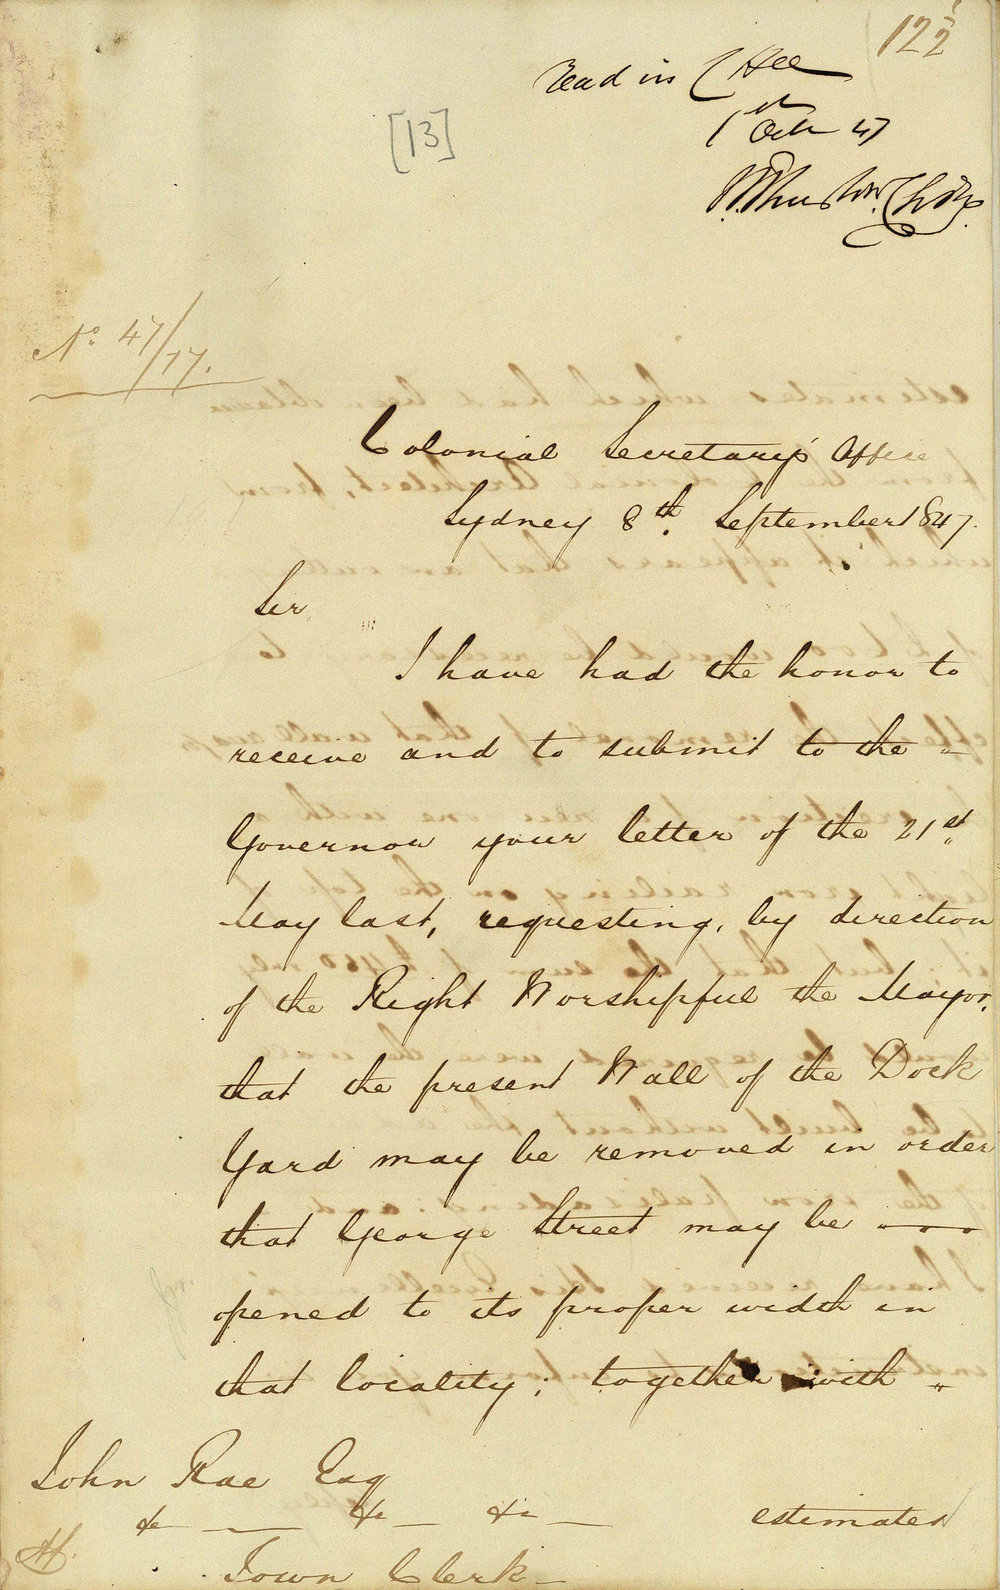 12½
Read in C Hee
1st Octr 47
[13]
No 47/77.
Colonial Secretary's Office
Sydney 8th. September 1847.
Sir
I have had the honor to
receive and to submit to the
Governor your letter of the 21st
May last, requesting, by direction
of the Right Worshipful the Mayor,
that the present Wall of the Dock
Yard may be removed in order
that George Street may be
opened to its proper width in
that locality; together with
John Rae Esq
&c &c &c
estimates
Town Clerk